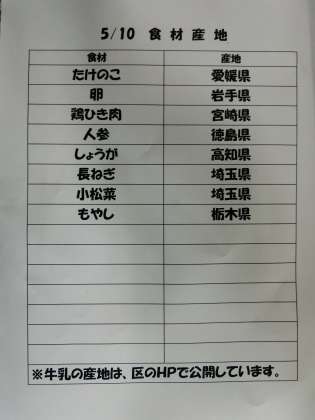 5/10 食材産地
食材 産地
たけのこ 愛媛県
卵 岩手県
鶏ひき肉 宮崎県
人参 徳島県
しょうが 高知県
長ねぎ 埼玉県
小松菜 埼玉県
もやし 栃木県
※牛乳の産地は、区のHPで公開しています。